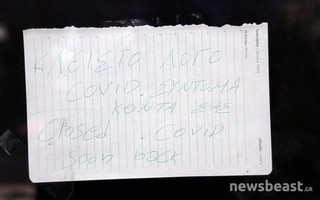 ΚΛΕΙΣΤΟ ΛΟΓΟ
COVID. ΣΥΝΤΟΜΑ
ΚΟΝΤΑ ΣΑΣ
Closed . COVID
Soon back
newsbeast.GR